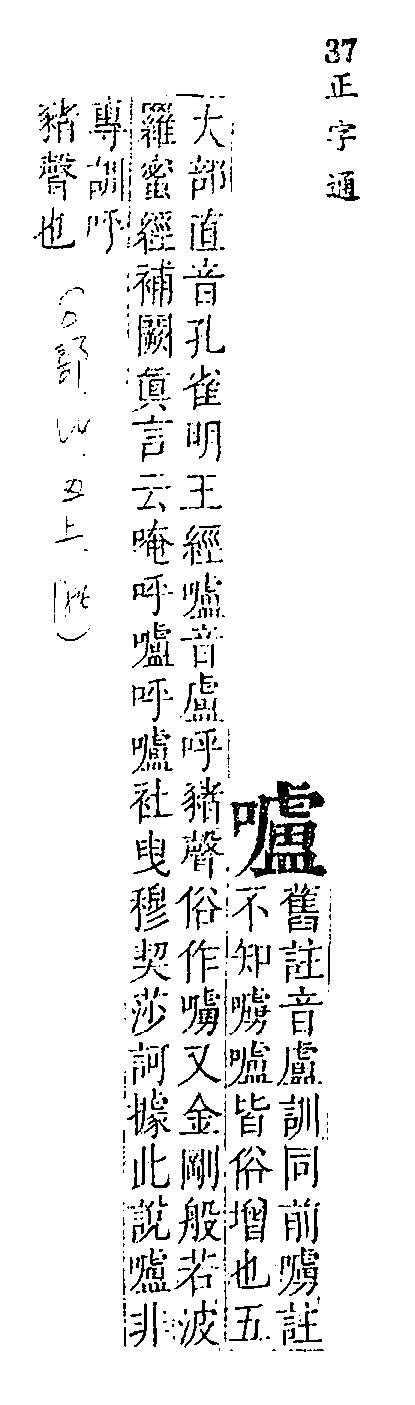 37 正字通
嚧
舊註音盧訓同前註
不知嚧皆俗增也五
大部直音孔雀明王經嚧音盧呼豬聲俗作又金剛般若波
羅蜜經補闕眞言云唵呼嚧呼嚧社曳穆契莎訶據此說嚧非
專訓呼
豬聲也
五上